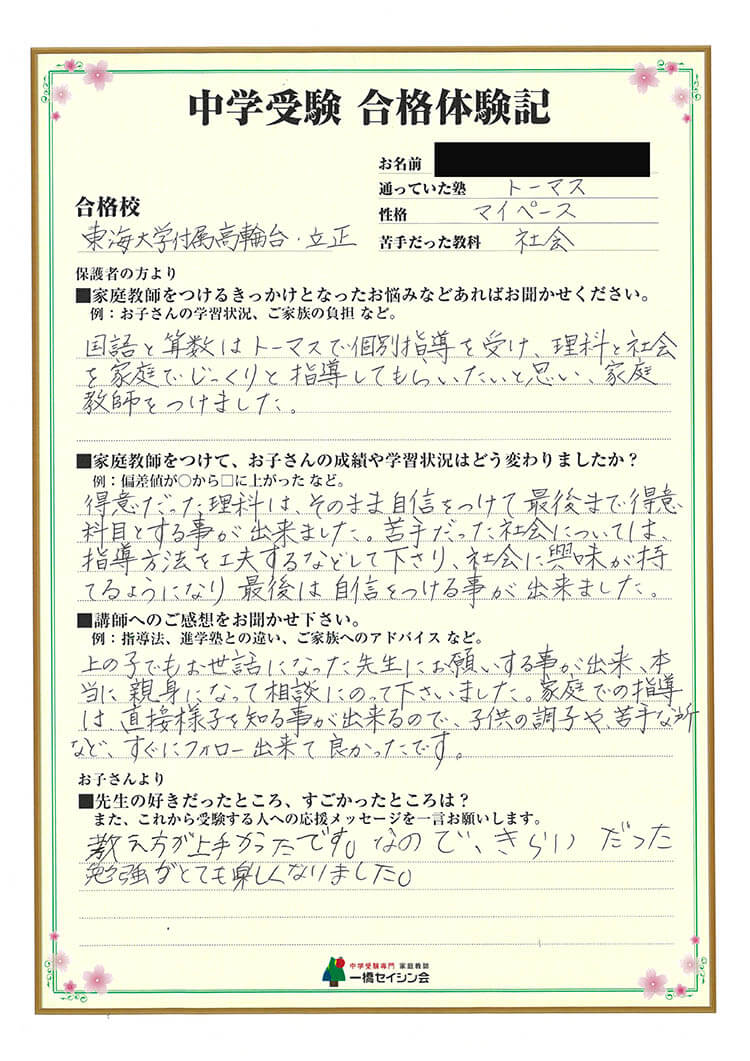 中学受験 合格体験記
お名前
通っていた塾 トーマス
合格校
性格 マイペース
東海大学付属高輪台・立正
苦手だった教科 社会
保護者の方より
■家庭教師をつけるきっかけとなったお悩みなどあればお聞かせください。
例：お子さんの学習状況、ご家族の負担 など。
国語と算数はトーマスで個別指導を受け、理科と社会
を家庭でじっくりと指導してもらいたいと思い、家庭
教師をつけました。
■家庭教師をつけて、お子さんの成績や学習状況はどう変わりましたか？
例：偏差値が○から□に上がった など。
得意だった理科は、そのまま自信をつけて最後まで得意
科目とする事が出来ました。苦手だった社会については、
指導方法を工夫するなどして下さり、社会に興味が持
てるようになり最後は自信をつける事が出来ました。
■講師へのご感想をお聞かせ下さい。
例：指導法、進学塾との違い、ご家族へのアドバイス など。
上の子でもお世話になった先生にお願いする事が出来、本
当に親身になって相談にのって下さいました。家庭での指導
は、直接様子を知る事が出来るので、子供の調子や、苦手な所
など、すぐにフォロー出来て良かったです。
お子さんより
■先生の好きだったところ、すごかったところは？
また、これから受験する人への応援メッセージを一言お願いします。
教え方が上手かったです。なので、きらいだった
勉強がとても楽しくなりました。
中学受験専門 家庭教師
一橋セイシン会